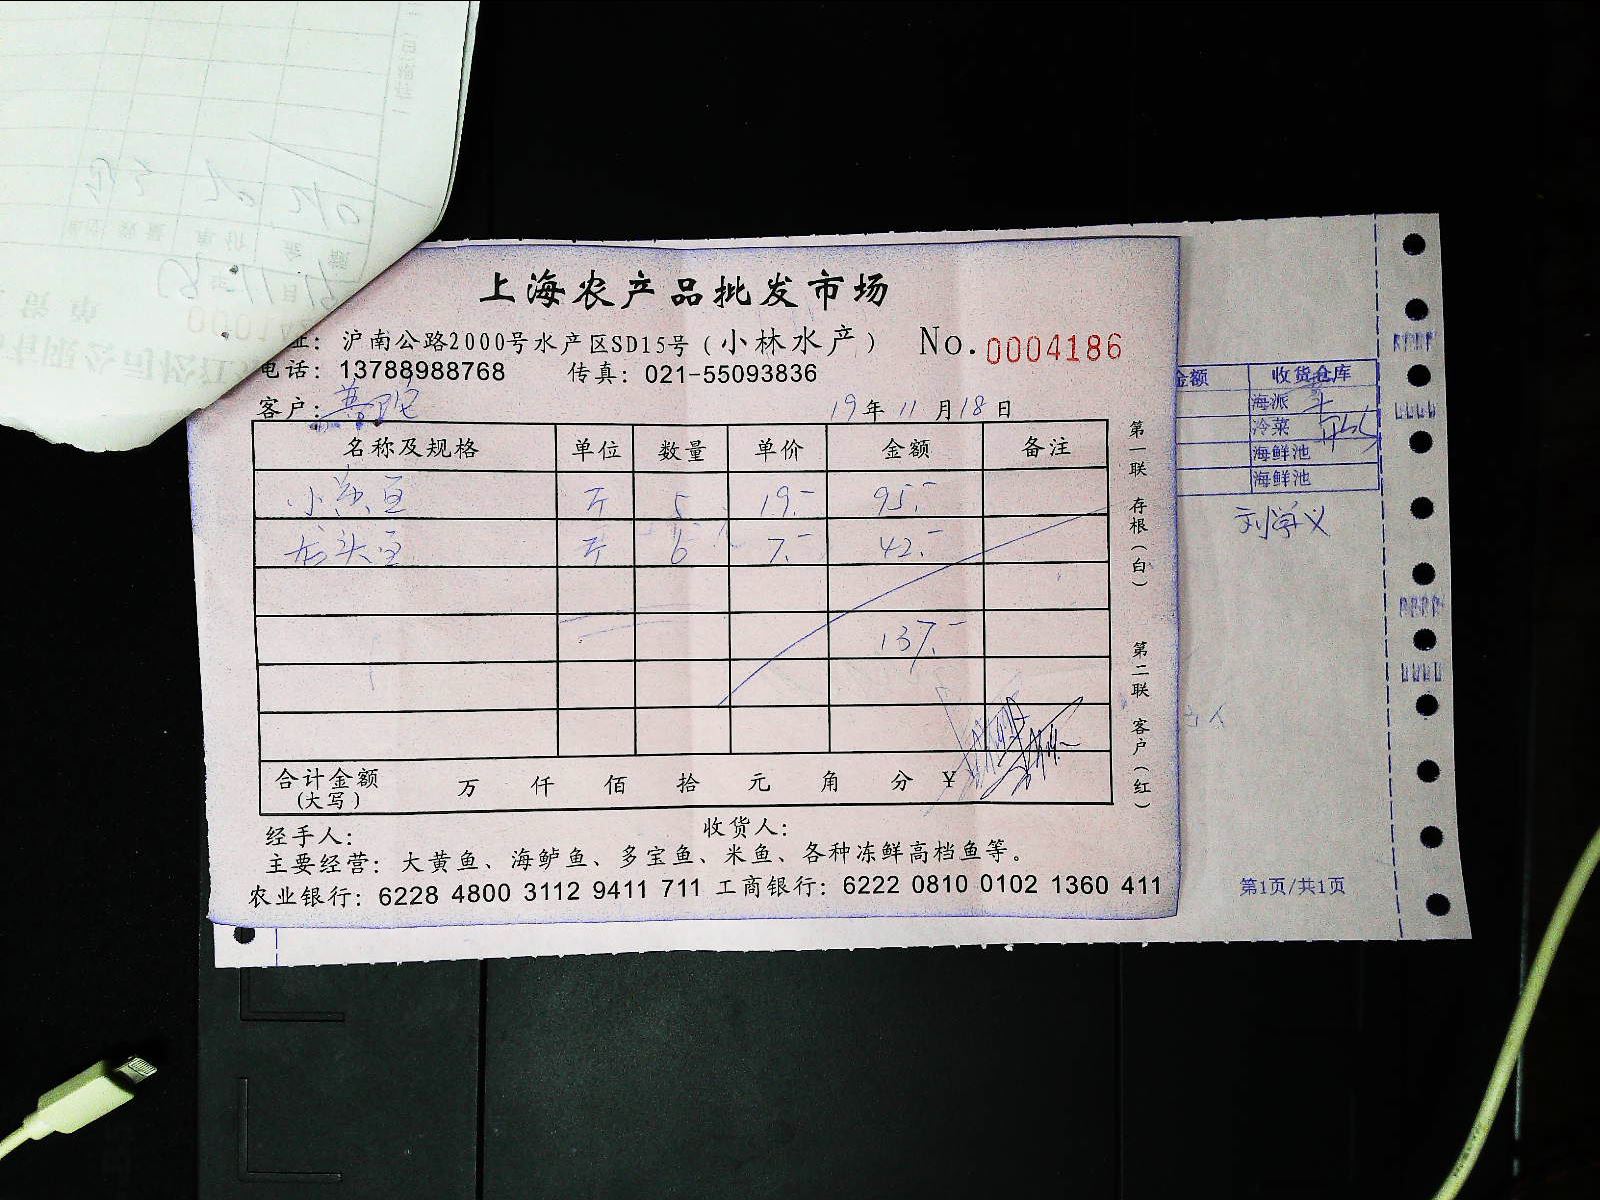 上海农产品批发市场
址：沪南公路2000号水产区SD15号（小林水产） No.0004186
电话：13788988768 传真：021-55093836
客户：普陀 19年11月18日
名称及规格 单位 数量 单价 金额 备注
小 斤 5 19.- 95.-
斤 6 7.- 42.-
137.-
合计金额 万 仟 佰 拾 元 角 分 ¥
(大写)
经手人： 收货人：
主要经营：大黄鱼、海鲈鱼、多宝鱼、米鱼、各种冻鲜高档鱼等。
农业银行：6228 4800 3112 9411 711 工商银行：6222 0810 0102 1360 411
第一联 存根（白） 第二联 客户（红）
金额 收货仓库
海派
冷菜
海鲜池
海鲜池
刘学义
第1页/共1页